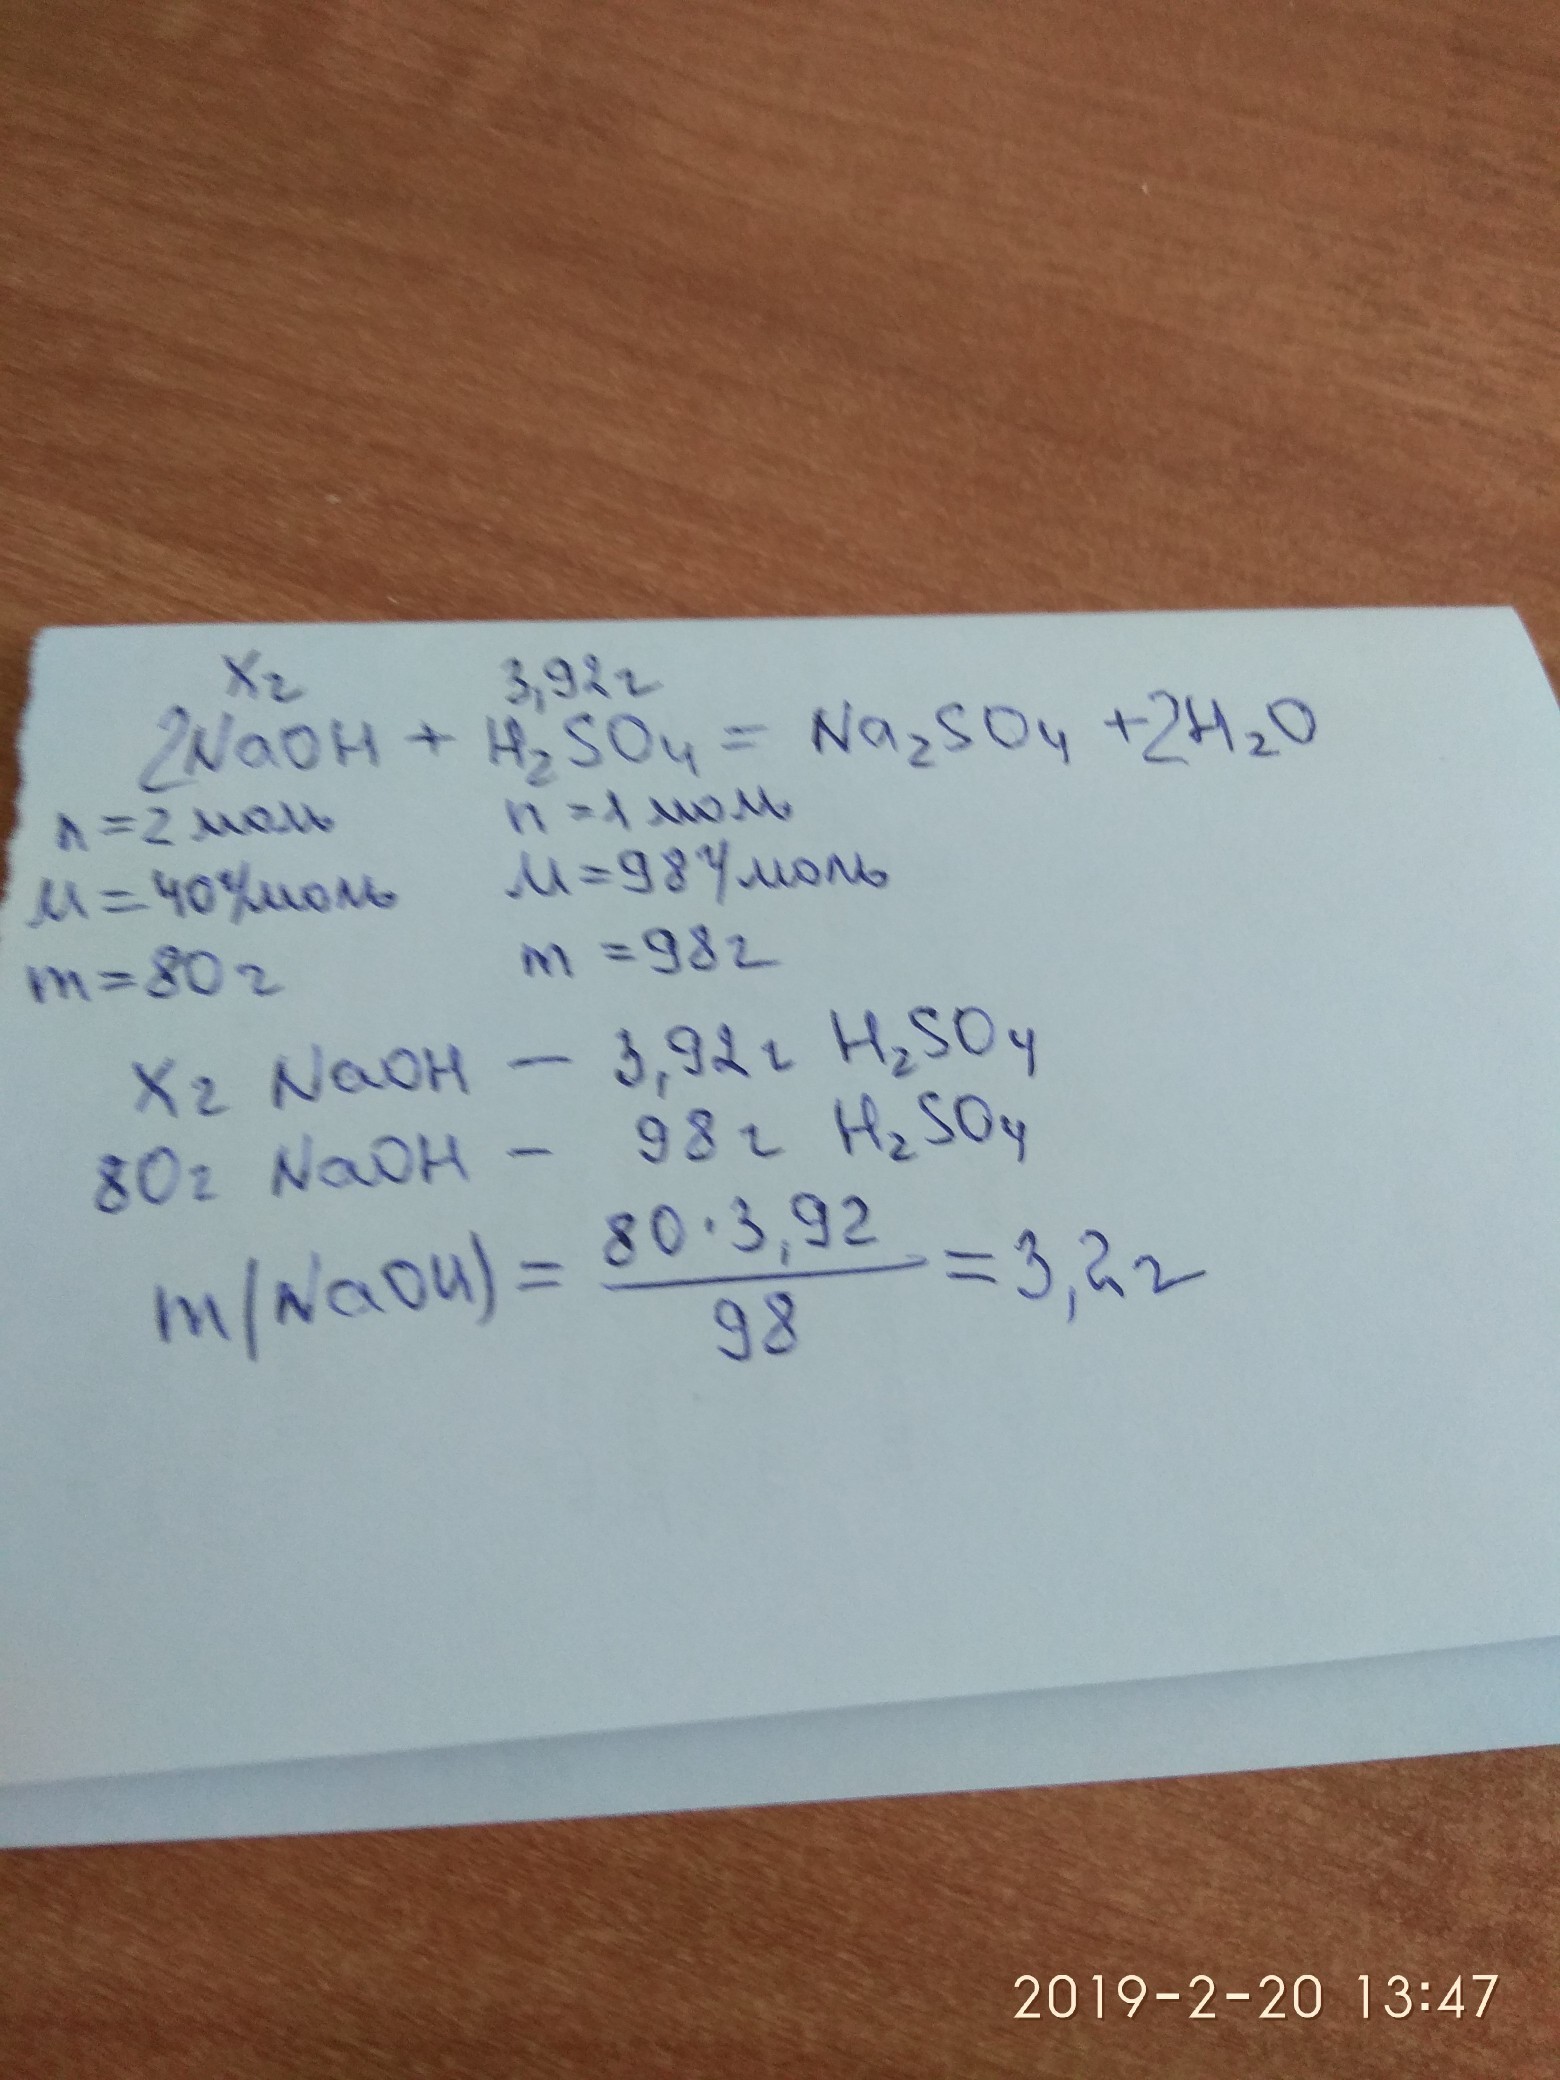 хг 3,92г
2NaOH + H₂SO₄ = Na₂SO₄ + 2H₂O
n=2моль n=1моль
M=40г/моль M=98г/моль
m=80г m=98г
хг NaOH – 3,92г H₂SO₄
80г NaOH – 98г H₂SO₄
m(NaOH) = 80·3,92/98 = 3,2г
2019-2-20 13:47